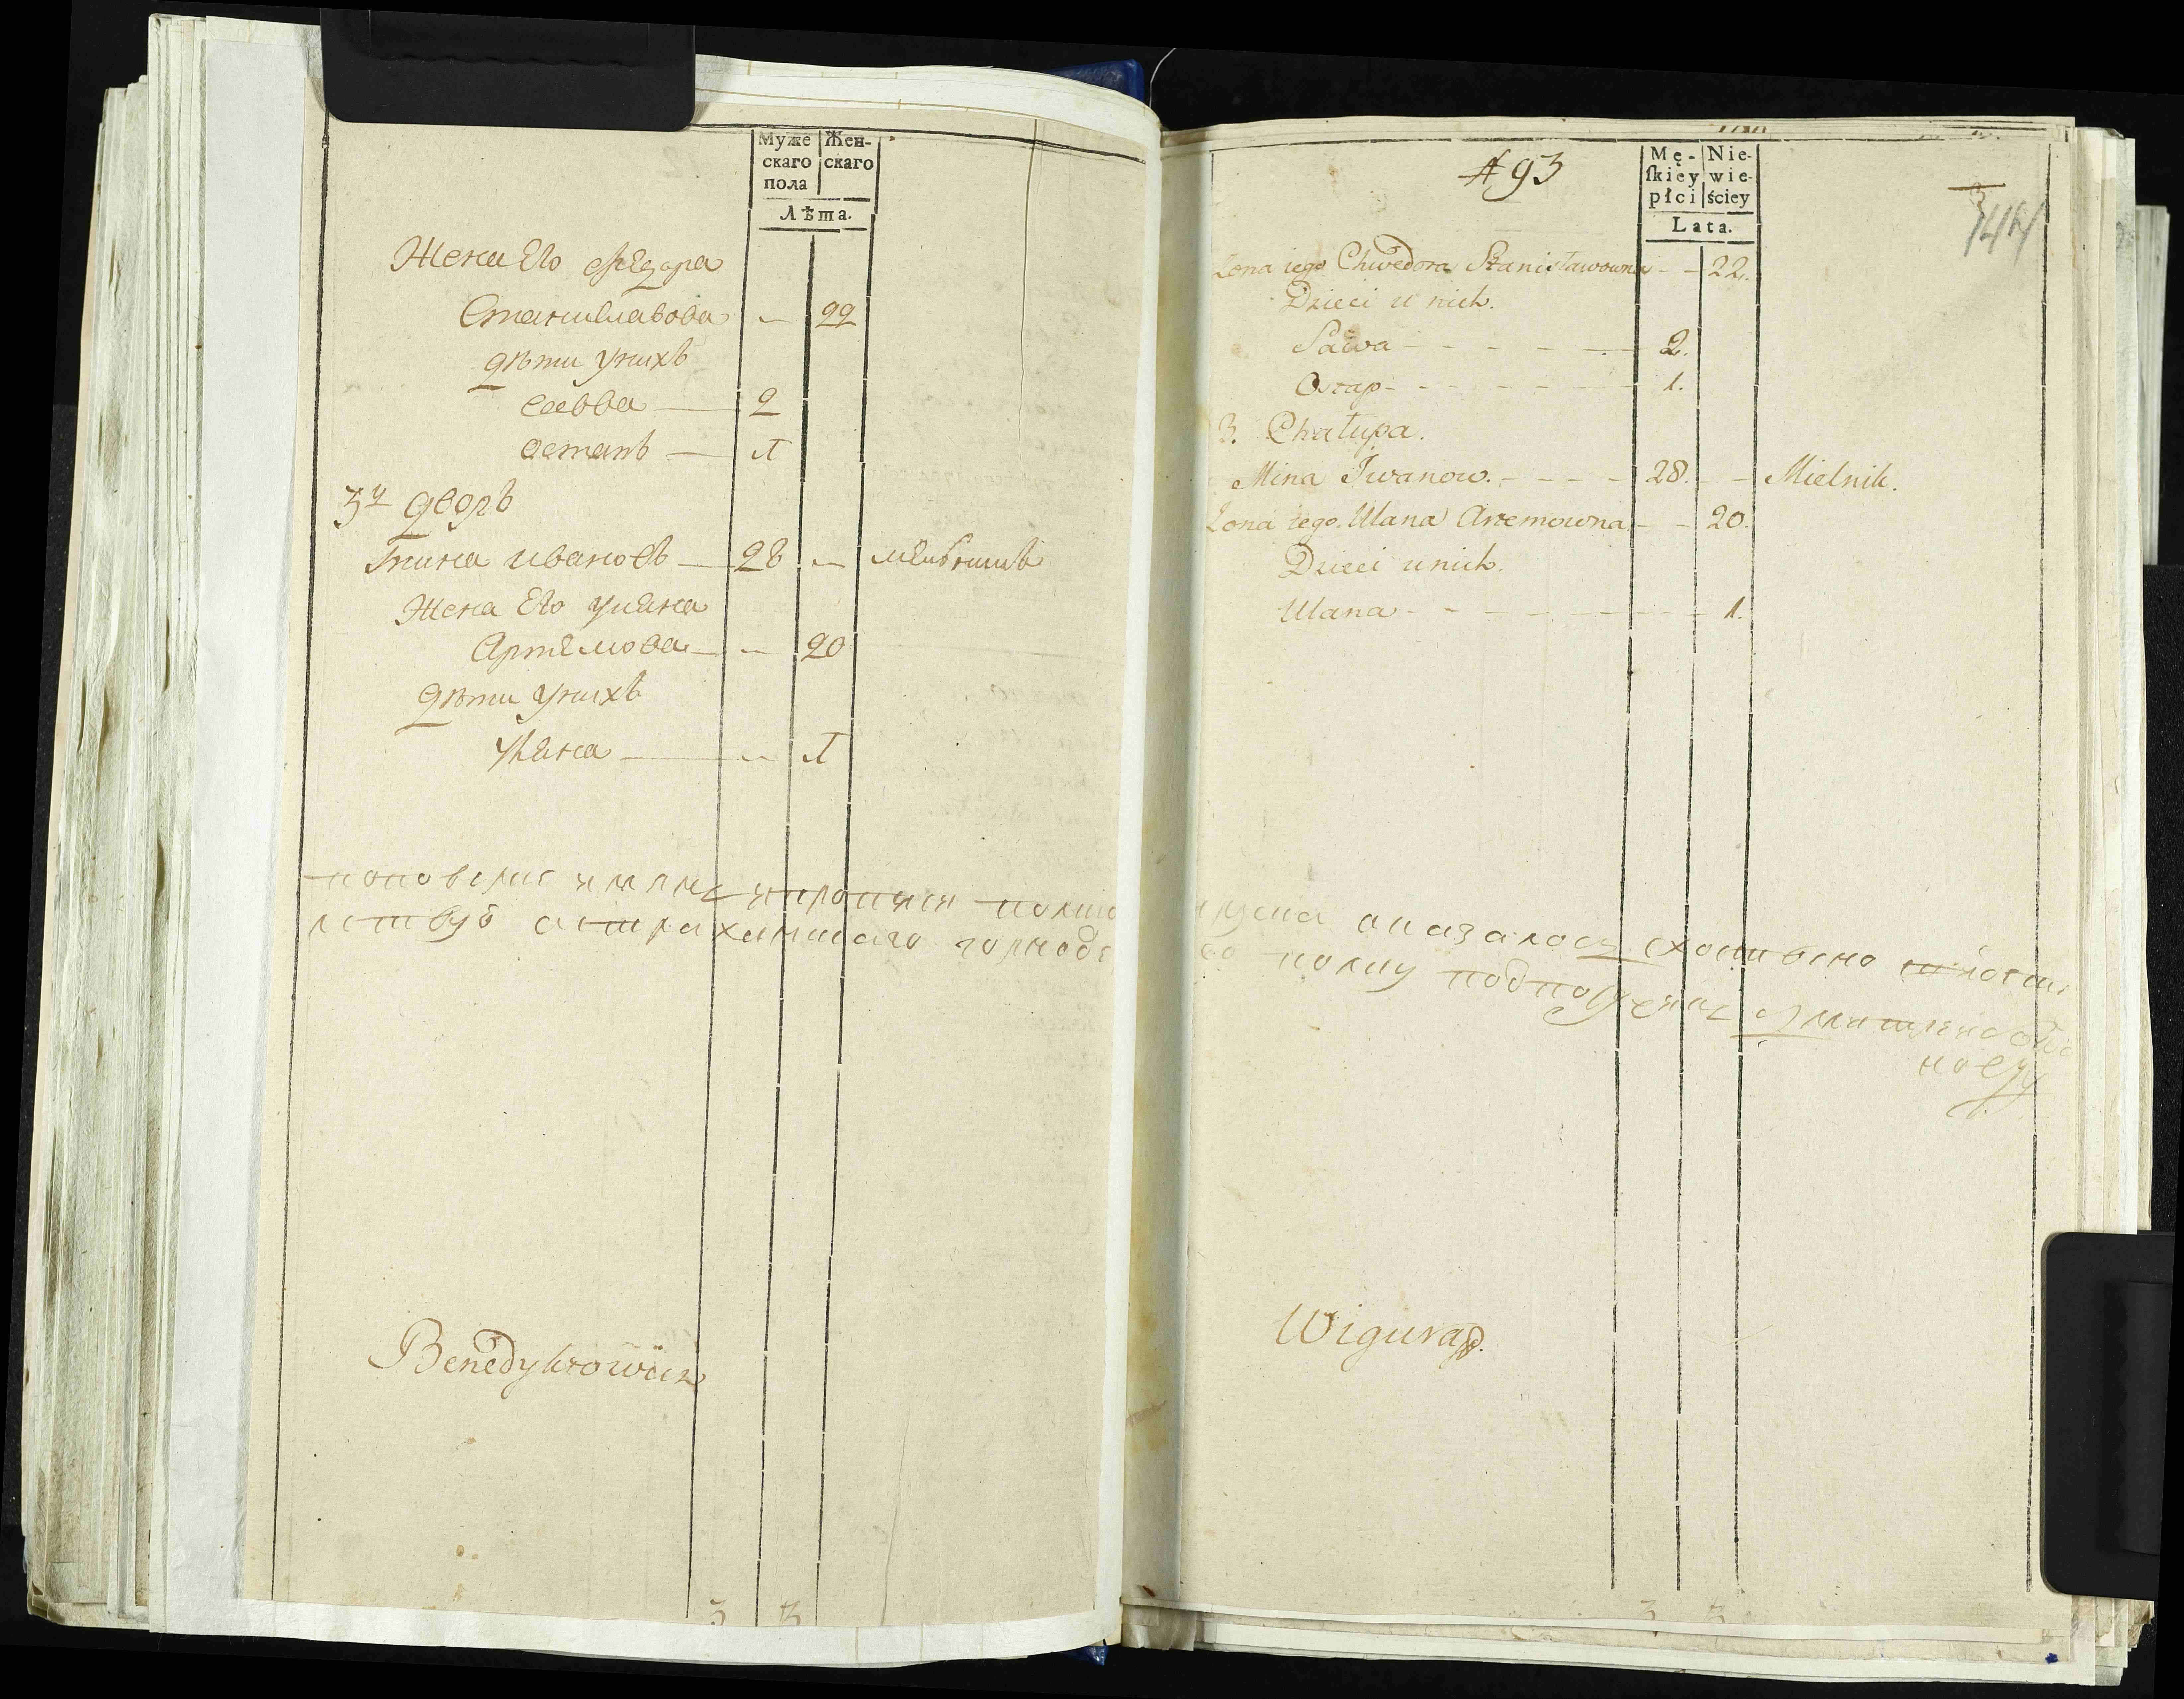 Муже скаго пола
Жен- скаго
Лѣта.
Жена Его Ѳедора
Станиславова — 22
дѣти у нихъ
Савва — 2
Остапъ — 1
3й дворъ
Мина Ивановъ — 28 — мельникъ
Жена Его Уляна
Артемова — — 20
дѣти у нихъ
Уляна — — 1
Benedyktowicz
3
№ 93
Mę- skiey płci
Nie- wie- ściey
Lata.
144
Zona iego Chwedora Stanisławowna - - 22.
Dzieci u nich.
Sawa - - - - - 2.
Ostap - - - - - 1.
3. Chałupa.
Mina Iwanow. - - - - 28. - - Mielnik.
Zona iego. Ulana Artemowna - - 20.
Dzieci u nich.
Ulana - - - - - - 1.
оказалось
полку
Wigura
3